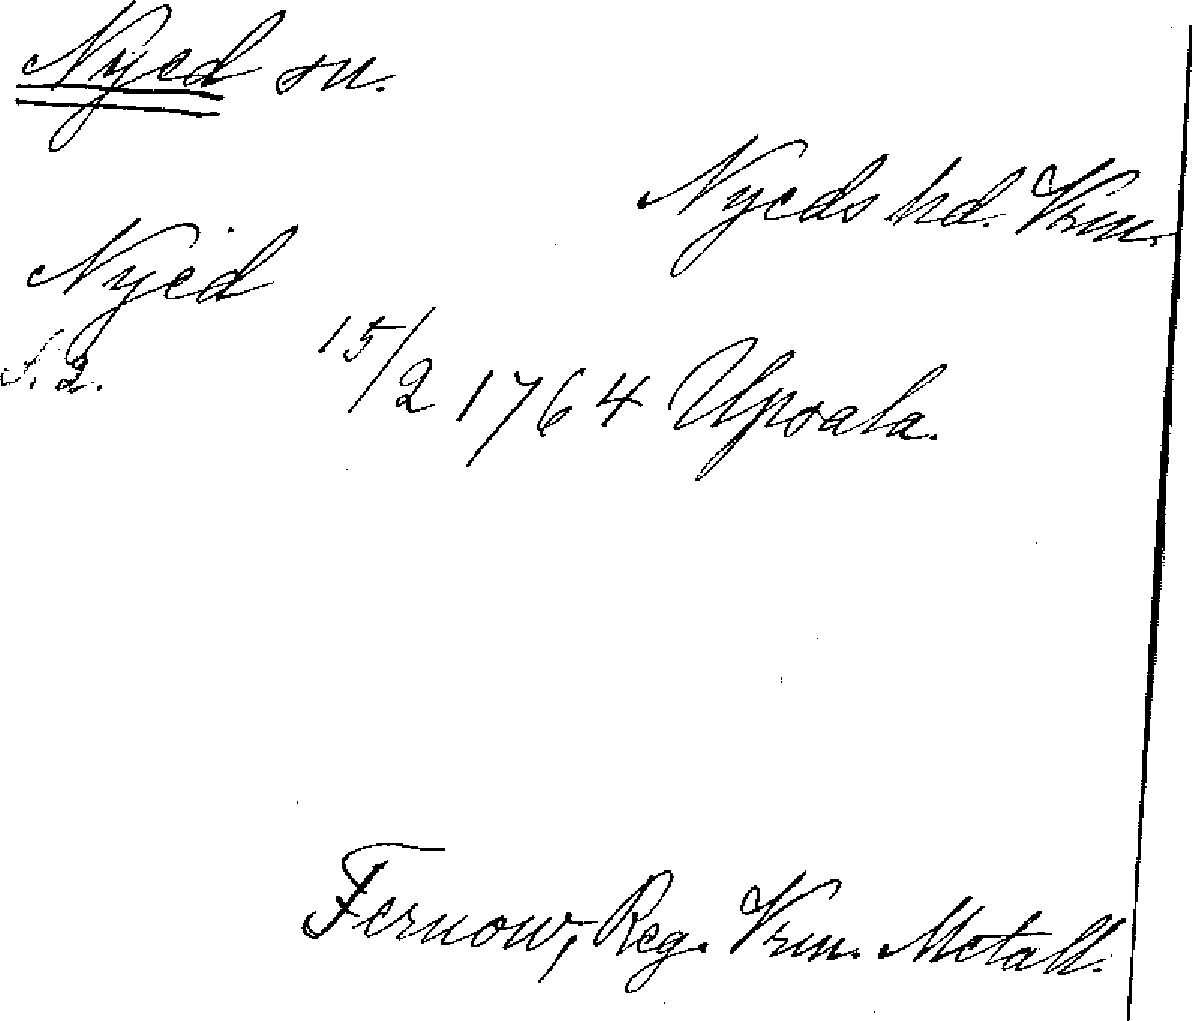 Nyed sn.
Nyeds hd. Vrm.
Nyed
S. 2.
15/2 1764 Upsala.
Fernow, Reg. Vrm. Metall.